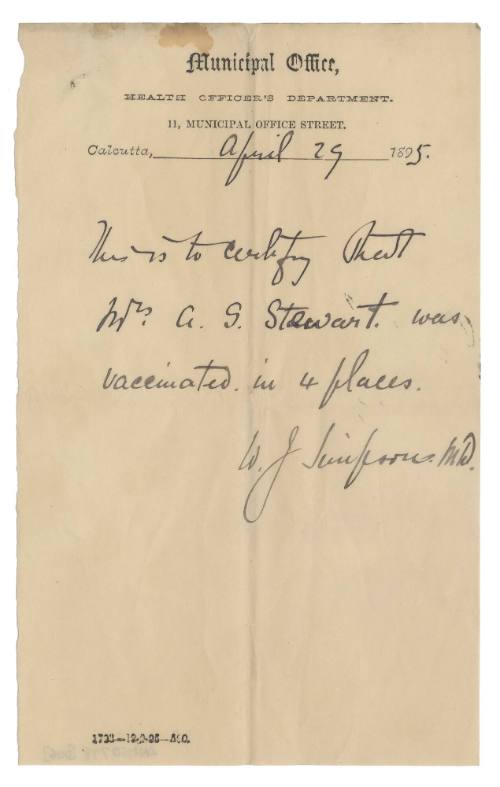 Municipal Office,
HEALTH OFFICER'S DEPARTMENT.
11, MUNICIPAL OFFICE STREET.
Calcutta, April 29 1895.
This is to certify that
Mrs. A. G. Stewart. was
vaccinated. in 4 places.
W. J Simpson. M.D.